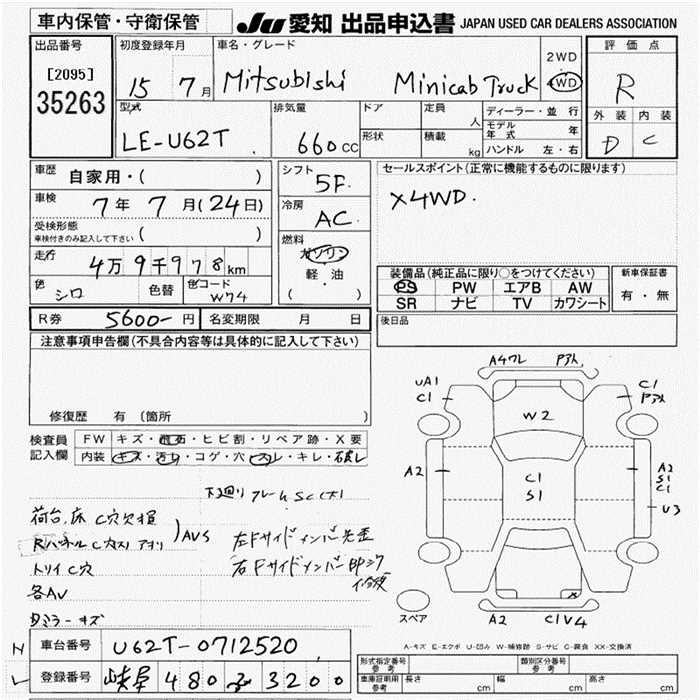 車内保管・守衛保管
JU 愛知 出品申込書 JAPAN USED CAR DEALERS ASSOCIATION
出品番号
[2095]
35263
初度登録年月
15 7月
車名・グレード
Mitsubishi Minicab Truck
2WD
4WD
評価点
R
外装 内装
D C
型式
LE-U62T
排気量
660cc
ドア
形状
定員
人
積載
kg
ディーラー・並行
モデル年式 年
ハンドル 左・右
車歴
自家用・( )
車検
7年 7月(24日)
受検形態
車検付きのみ記入して下さい ( )
走行
4万9千978km
色 シロ 色替 色コード W74
シフト
5F
冷房
AC
燃料
ガソリン
軽・油
( )
セールスポイント(正常に機能するものに限ります)
X4WD.
装備品(純正品に限り○をつけてください)
PS PW エアB AW
SR ナビ TV カワシート
新車保証書
有・無
R券 5600- 円 名変期限 月 日
後日品
注意事項申告欄(不具合内容等は具体的に記入して下さい)
修復歴 有(箇所 )
検査員記入欄
FW キズ・飛石・ヒビ割・リペア跡・X要
内装 キズ・汚れ・コゲ・穴・スレ・キレ・破レ
下廻り フレームSC(大)
荷台,床 C穴欠損
Rパネル C穴
トリイ C穴
AVS
各AU
ミラーキズ
左Fサイドメンバー先歪
右Fサイドメンバー
A4ワレ
UA1
C1
C1
W2
A2
C1
S1
A2
S1
C1
U3
スペア
A2
C1V4
A-キズ E-エクボ U-凹み W-補修跡 S-サビ C-腐食 XX-交換済
車台番号 U62T-0712520
登録番号 岐阜 480 3200
形式指定番号
参考
類別区分番号
参考
車庫証明用
参考
長さ cm 幅 cm 高さ cm